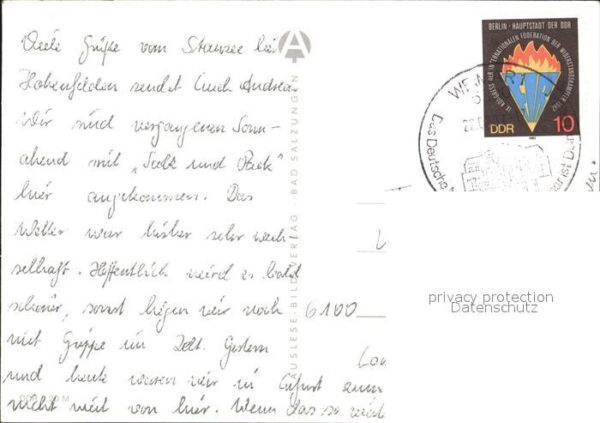 Viele Grüße vom Stausee bei
Hohenfelden sendet Euch Andreas
Wir sind vergangenen Sonn-
abend mit „Sack und Pack"
hier angekommen. Das
Wetter war bisher sehr wech
selhaft. Hoffentlich wird es bald
schöner, sonst liegen wir noch
mit Grippe im Zelt. Gestern
und heute waren wir in Erfurt
nicht weit von hier. Wenn das so
6100
AUSLESE-BILD-VERLAG - BAD SALZUNGEN
BERLIN · HAUPTSTADT DER DDR
IX. KONGRESS DER INTERNATIONALEN FÖDERATION DER WIDERSTANDSKÄMPFER 1982
FIR
DDR 10
Das Deutsche
privacy protection
Datenschutz